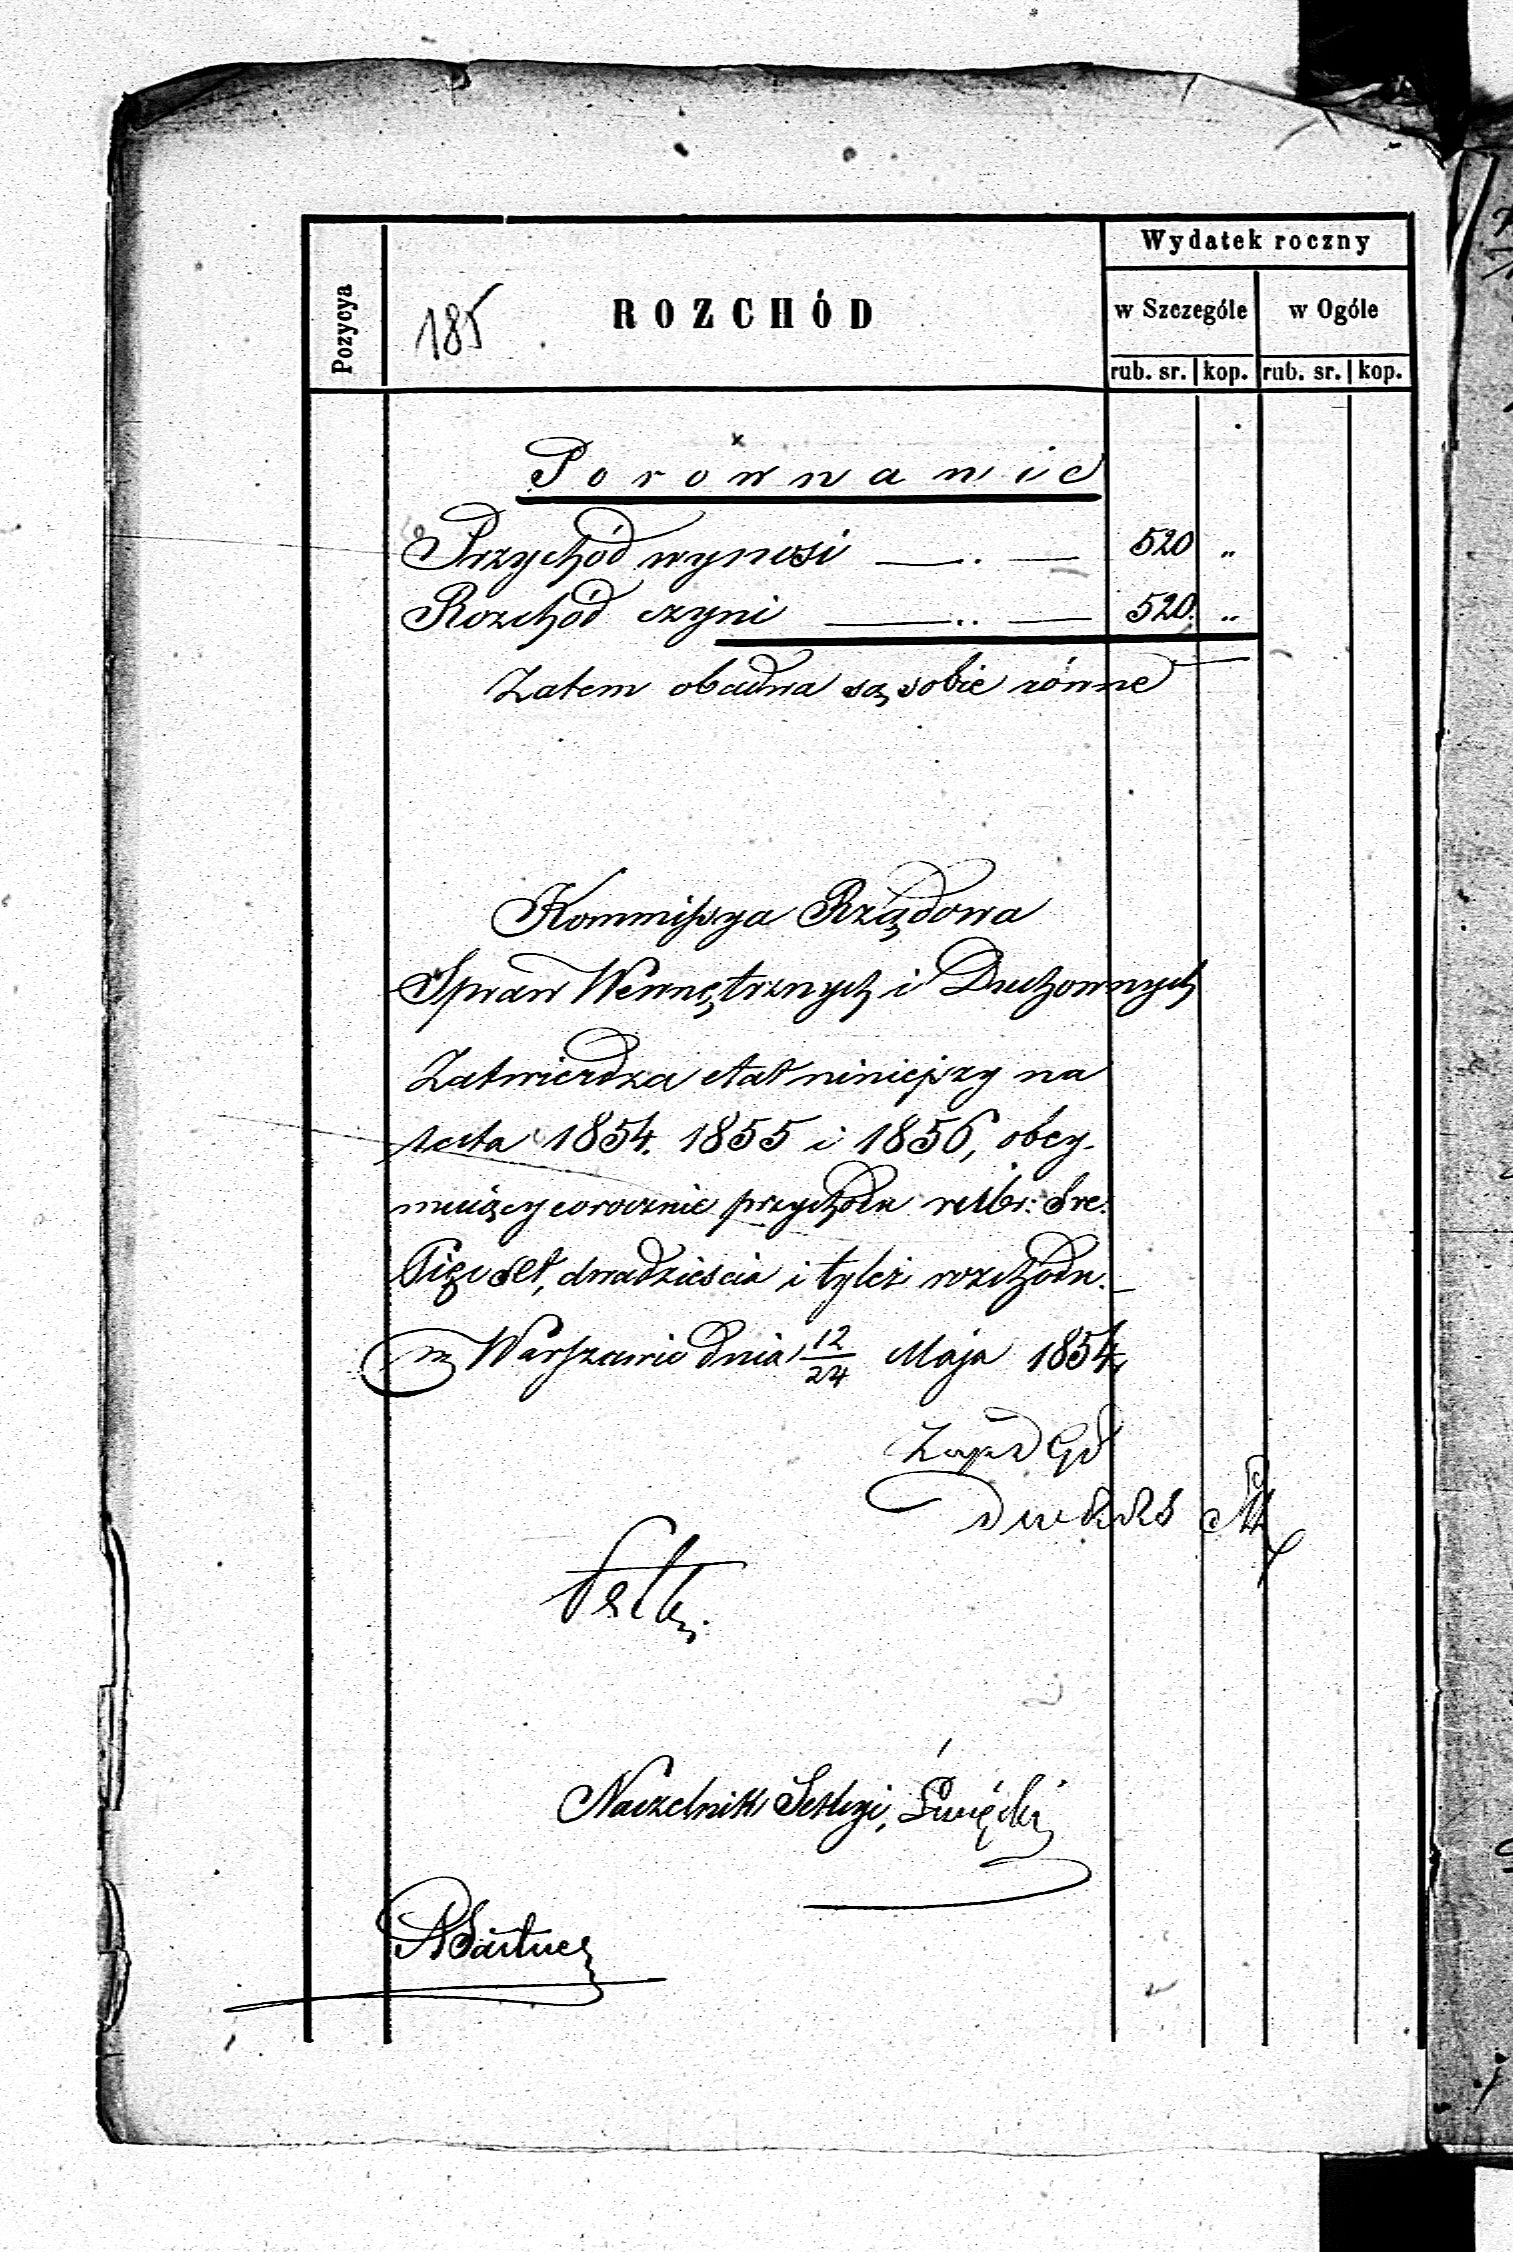 Pozycya
185
ROZCHÓD
Wydatek roczny
w Szczególe
w Ogóle
rub. sr. kop. rub. sr. kop.
Porównanie
Przychód wynosi — .. — 520 „
Rozchód czyni — .. — 520. „
Zatem obadwa są sobie równe
Kommissya Rządowa
Spraw Wewnętrznych i Duchownych
Zatwierdza etat niniejszy na
lata 1854. 1855 i 1856, obey-
muiący corocznie przychodu rubr: Sre:
Pięćset, dwadzieścia i tyleż rozchodu. —
w Warszawie dnia 12/24 Maja 1854
Naczelnik Sekcyi, Święcki